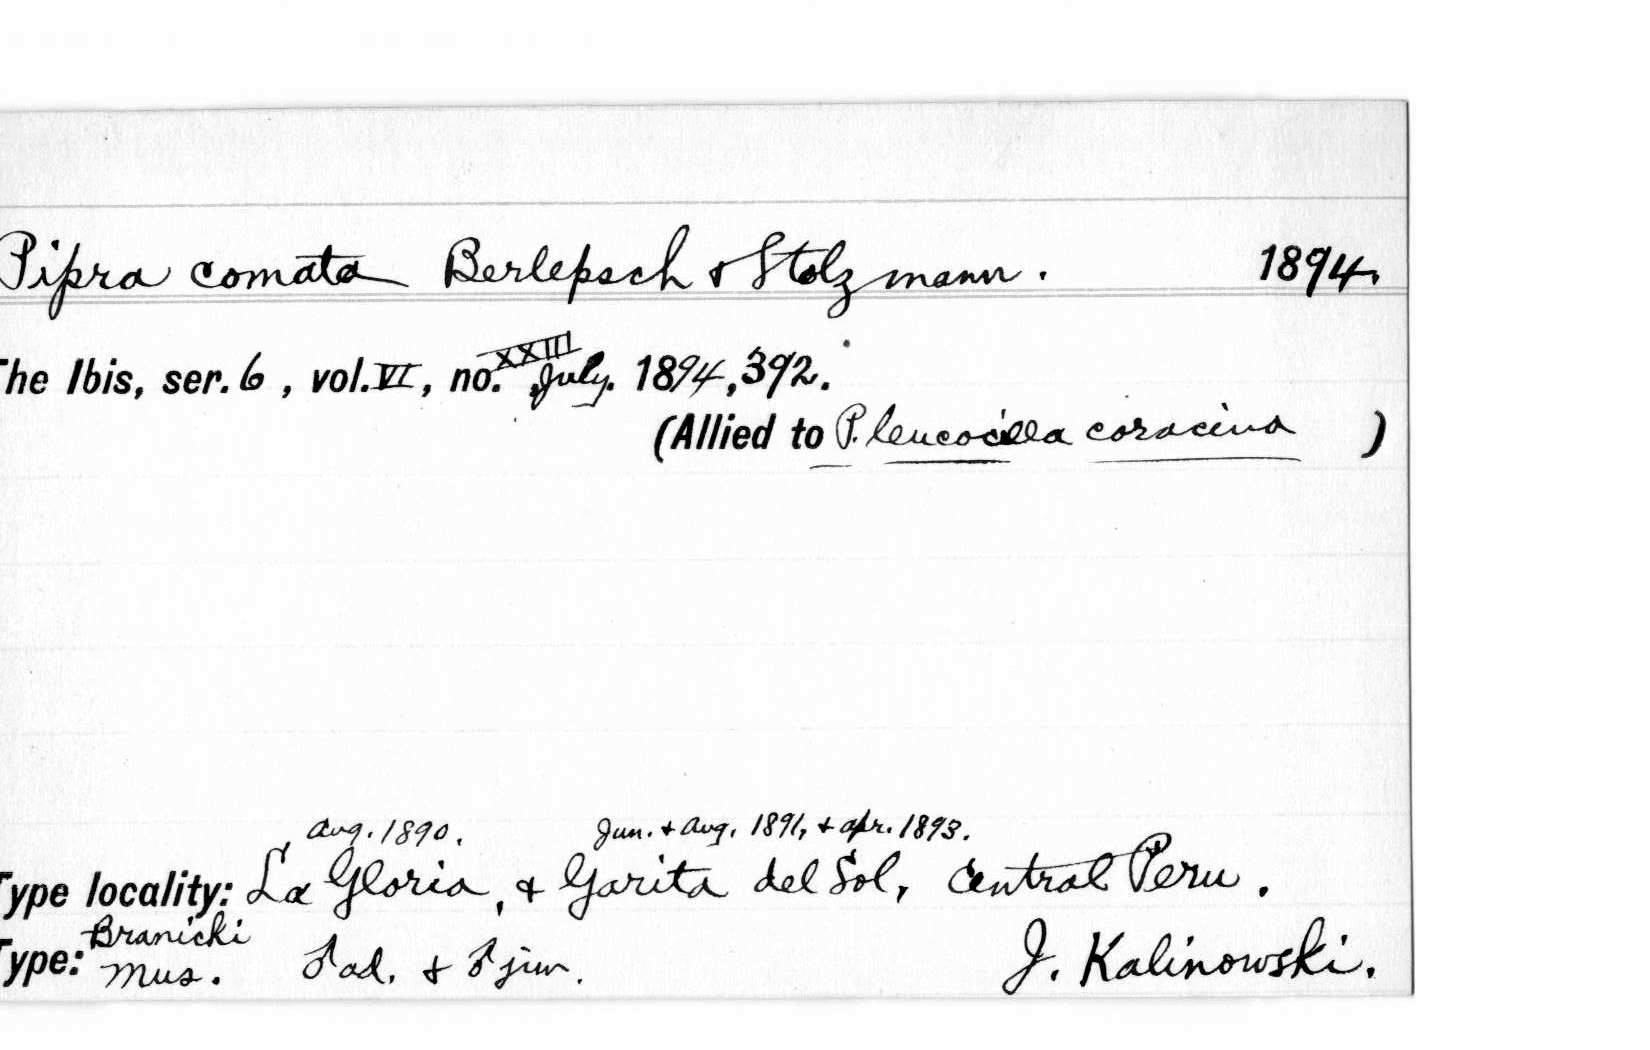 Pipra comata Berlepsch & Stolzmann. 1894.
The Ibis, ser. 6, vol. VI, no. XXIII, July. 1894, 392.
(Allied to P. leucocilla coracina)
Aug. 1890. Jun. & Aug. 1891, & Apr. 1893.
Type locality: La Gloria, & Garita del Sol, Central Peru.
Type: Branicki Mus. ♂ ad. & ♂ juv. J. Kalinowski.